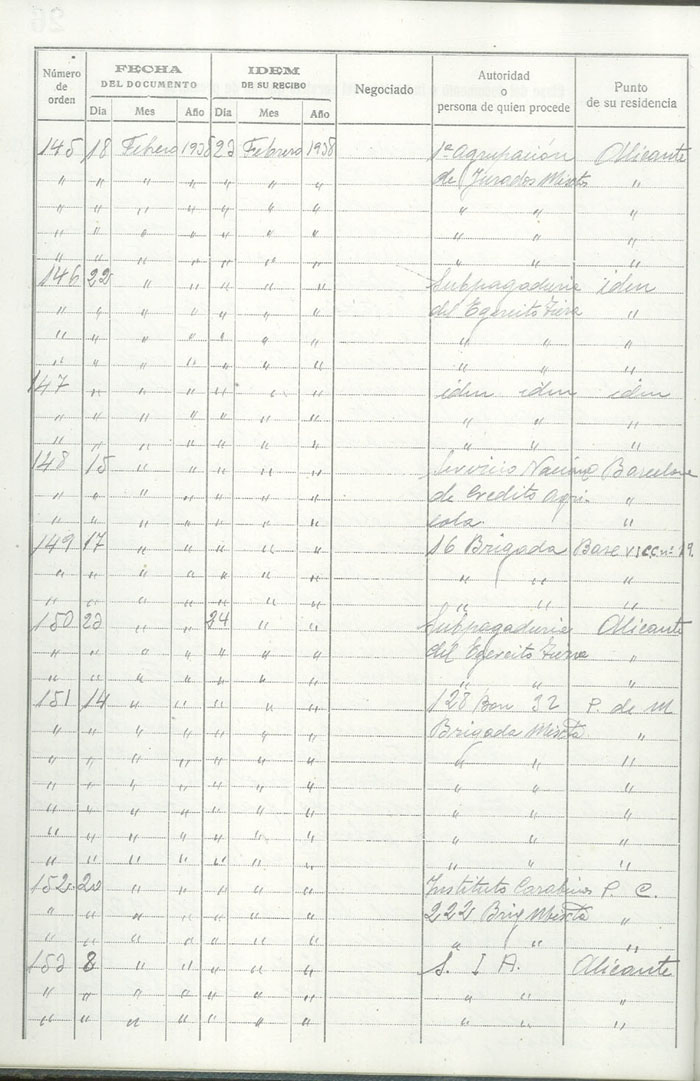 Número de orden FECHA DEL DOCUMENTO IDEM DE SU RECIBO Negociado Autoridad o persona de quien procede Punto de su residencia
Dia Mes Año Dia Mes Año
145 18 Febrero 1938 23 Febrero 1938 1ª Agrupación Alicante
" " " " " " " de Jurados Mixtos "
" " " " " " " " " "
" " " " " " " " " "
" " " " " " " " " "
146 22 " " " " " Subpagaduria iden
" " " " " " " del Egercito Tierra "
" " " " " " " " " "
" " " " " " " " " "
147 " " " " " " iden iden iden
" " " " " " " " " "
" " " " " " " " " "
148 15 " " " " " Servicio Nacional Barcelona
" " " " " " " de Credito Agri- "
" " " " " " " cola "
149 17 " " " " " 16 Brigada Base
" " " " " " " " " "
" " " " " " " " " "
150 23 " " 24 " " Subpagaduria Alicante
" " " " " " " del Egercito Tierra "
" " " " " " " " " "
151 14 " " " " " 128 Bon 32 P. de M
" " " " " " " Brigada Mixta "
" " " " " " " " " "
" " " " " " " " " "
" " " " " " " " " "
" " " " " " " " " "
" " " " " " " " " "
152 20 " " " " " Instituto Carabineros P. C.
" " " " " " " 222 Brig Mixta "
" " " " " " " " " "
153 8 " " " " " S. I A. Alicante
" " " " " " " " " "
" " " " " " " " " "